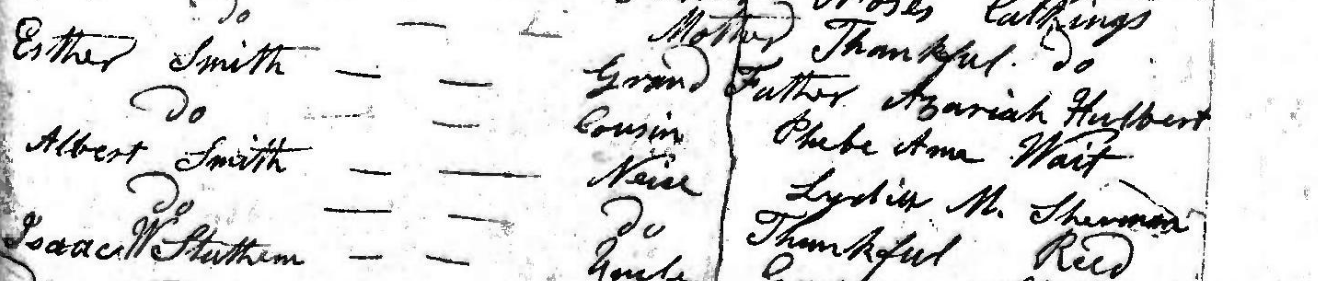 Moses Cathings
Do — — Mother Thankful. Do
Esther Smith — — Grand Father Azariah Hulbert
Do — — Cousin Phebe Ama Wait
Albert Smith — — Neice Lydia M. Sherman
Do — — Do Thankful Reed
Isaac W Stathem — — Uncle